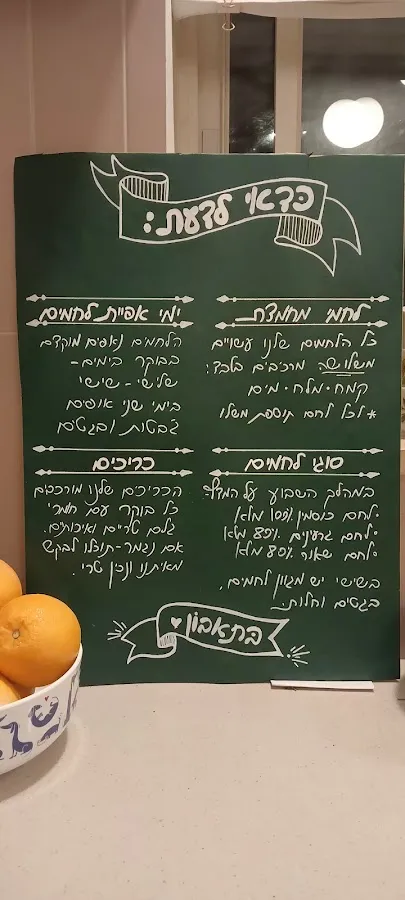 כדאי לדעת:
לחמי מחמצת
כל הלחמים שלנו עשויים
משלושה מרכיבים בלבד:
קמח • מלח • מים
* לכל לחם תוספת משלו
ימי אפיית לחמים
הלחמים נאפים מוקדם
בבוקר בימים -
שלישי - שישי
בימי שני אופים
ג'בטות ובגטים
סוגי לחמים
במהלך השבוע על המדף:
• לחם כוסמין 100% מלא
• לחם גרעינים 85% מלא
• לחם שאור 80% מלא
בשישי יש מגוון לחמים,
בגטים וחלות.
כריכים
הכריכים שלנו מורכבים
כל בוקר עם חומרי
גלם טריים ואיכותיים.
אם נגמר - תוכלו לבקש
מאיתנו ונכין טרי.
בתאבון ♥